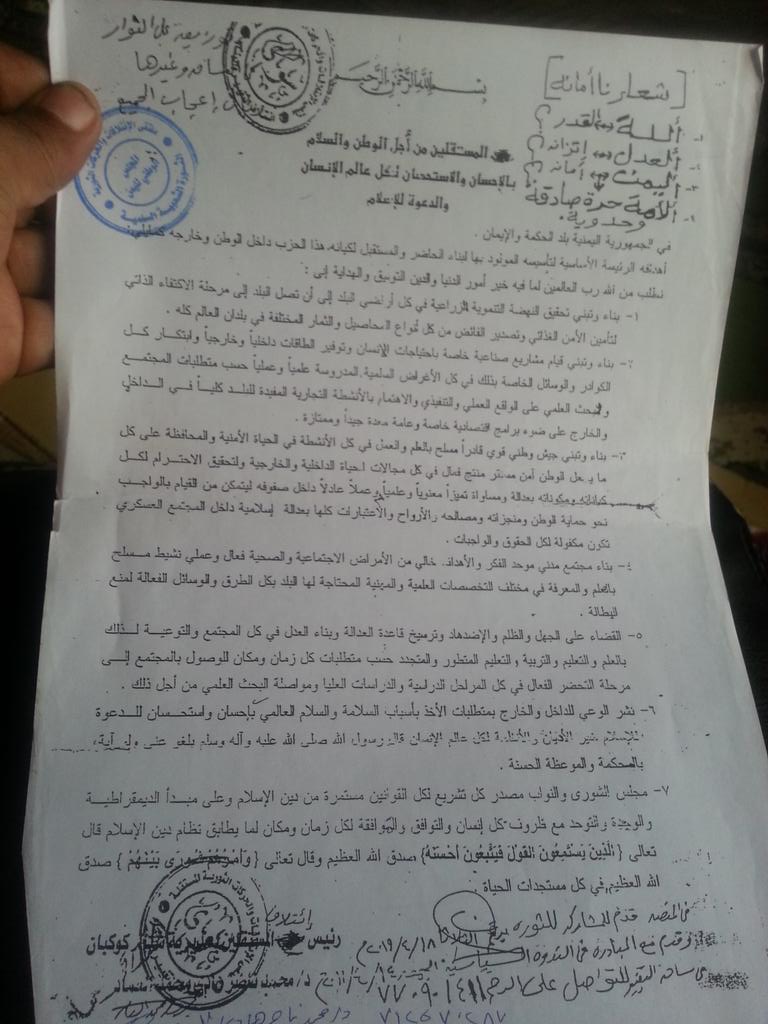 بسم الله الرحمن الرحيم
[شعارنا أمانه]
الله القدر
العدل إتزانه
اليمن أمانه
الأمة حرة صادقة
وحدوية
المستقلين من أجل الوطن والسلام
بالإحسان والاستحسان لكل عالم الإنسان
والدعوة للإعلام
في الجمهورية اليمنية بلد الحكمة والإيمان .
أهدافه الرئيسة الأساسية لتأسيسه المولود بها لبناء الحاضر والمستقبل لكيانه هذا الحزب داخل الوطن وخارجه كمايلي:
نطلب من الله رب العالمين لما فيه خير أمور الدنيا والدين التوفيق والهداية إلى :
١- بناء وتبني تحقيق النهضة التنموية الزراعية في كل أراضي البلد إلى أن تصل البلد إلى مرحلة الاكتفاء الذاتي
لتأمين الأمن الغذائي وتصدير الفائض من كل أنواع المحاصيل والثمار المختلفة في بلدان العالم كله .
٢- بناء وتبني قيام مشاريع صناعية خاصة باحتياجات الإنسان وتوفير الطاقات داخلياً وخارجياً وابتكار كل
الكوادر والوسائل الخاصة بذلك في كل الأغراض السلمية المدروسة علمياً وعملياً حسب متطلبات المجتمع
والبحث العلمي على الواقع العملي والتنفيذي والاهتمام بالأنشطة التجارية المفيدة للبلد كلياً في الداخل
والخارج على ضوء برامج اقتصادية خاصة وعامة معدة جيداً وممتازة .
٣- بناء وتبني جيش وطني قوي قادراً مسلح بالعلم والعمل في كل الأنشطة في الحياة الأمنية والمحافظة على كل
ما يجعل الوطن أمن مستقر منتج فعال في كل مجالات الحياة الداخلية والخارجية ولتحقيق الاحترام لكل
كياناته ومكوناته بعدالة ومساواة تميزاً معنوياً وعلمياً وعملاً عادلاً داخل صفوفه ليتمكن من القيام بالواجب
نحو حماية الوطن ومنجزاته ومصالحه والأرواح والاعتبارات كلها بعدالة إسلامية داخل المجتمع العسكري
تكون مكفولة لكل الحقوق والواجبات .
٤- بناء مجتمع مدني موحد الفكر والأهداف خالي من الأمراض الاجتماعية والصحية فعال وعملي نشيط مسلح
بالعلم والمعرفة في مختلف التخصصات العلمية والمهنية المحتاجة لها البلد بكل الطرق والوسائل الفعالة لمنع
البطالة .
٥- القضاء على الجهل والظلم والإضدهاد وترسيخ قاعدة العدالة وبناء العدل في كل المجتمع والتوعية لذلك
بالعلم والتعليم والتربية والتعليم المتطور والمتجدد حسب متطلبات كل زمان ومكان للوصول بالمجتمع إلى
مرحلة التحضر الفعال في كل المراحل الدراسية والدراسات العليا ومواصلة البحث العلمي من أجل ذلك .
٦- نشر الوعي للداخل والخارج بمتطلبات الأخذ بأسباب السلامة والسلام العالمي بإحسان واستحسان للدعوة
للإسلام خير الأديان لكل عالم الإنسان قال رسول الله صلى الله عليه وآله وسلم بلغو عني ولو آية،
بالحكمة والموعظة الحسنة .
٧- مجلس الشورى والنواب مصدر كل تشريع لكل القوانين مستمرة من دين الإسلام وعلى مبدأ الديمقراطية
والوحدة والتوحد مع ظروف كل إنسان والتوافق والموافقة لكل زمان ومكان لما يطابق نظام دين الإسلام قال
تعالى {الَّذِينَ يَسْتَمِعُونَ الْقَوْلَ فَيَتَّبِعُونَ أَحْسَنَهُ} صدق الله العظيم وقال تعالى {وَأَمْرُهُمْ شُورَى بَيْنَهُمْ} صدق
الله العظيم في كل مستجدات الحياة .
رئيس المستقلين